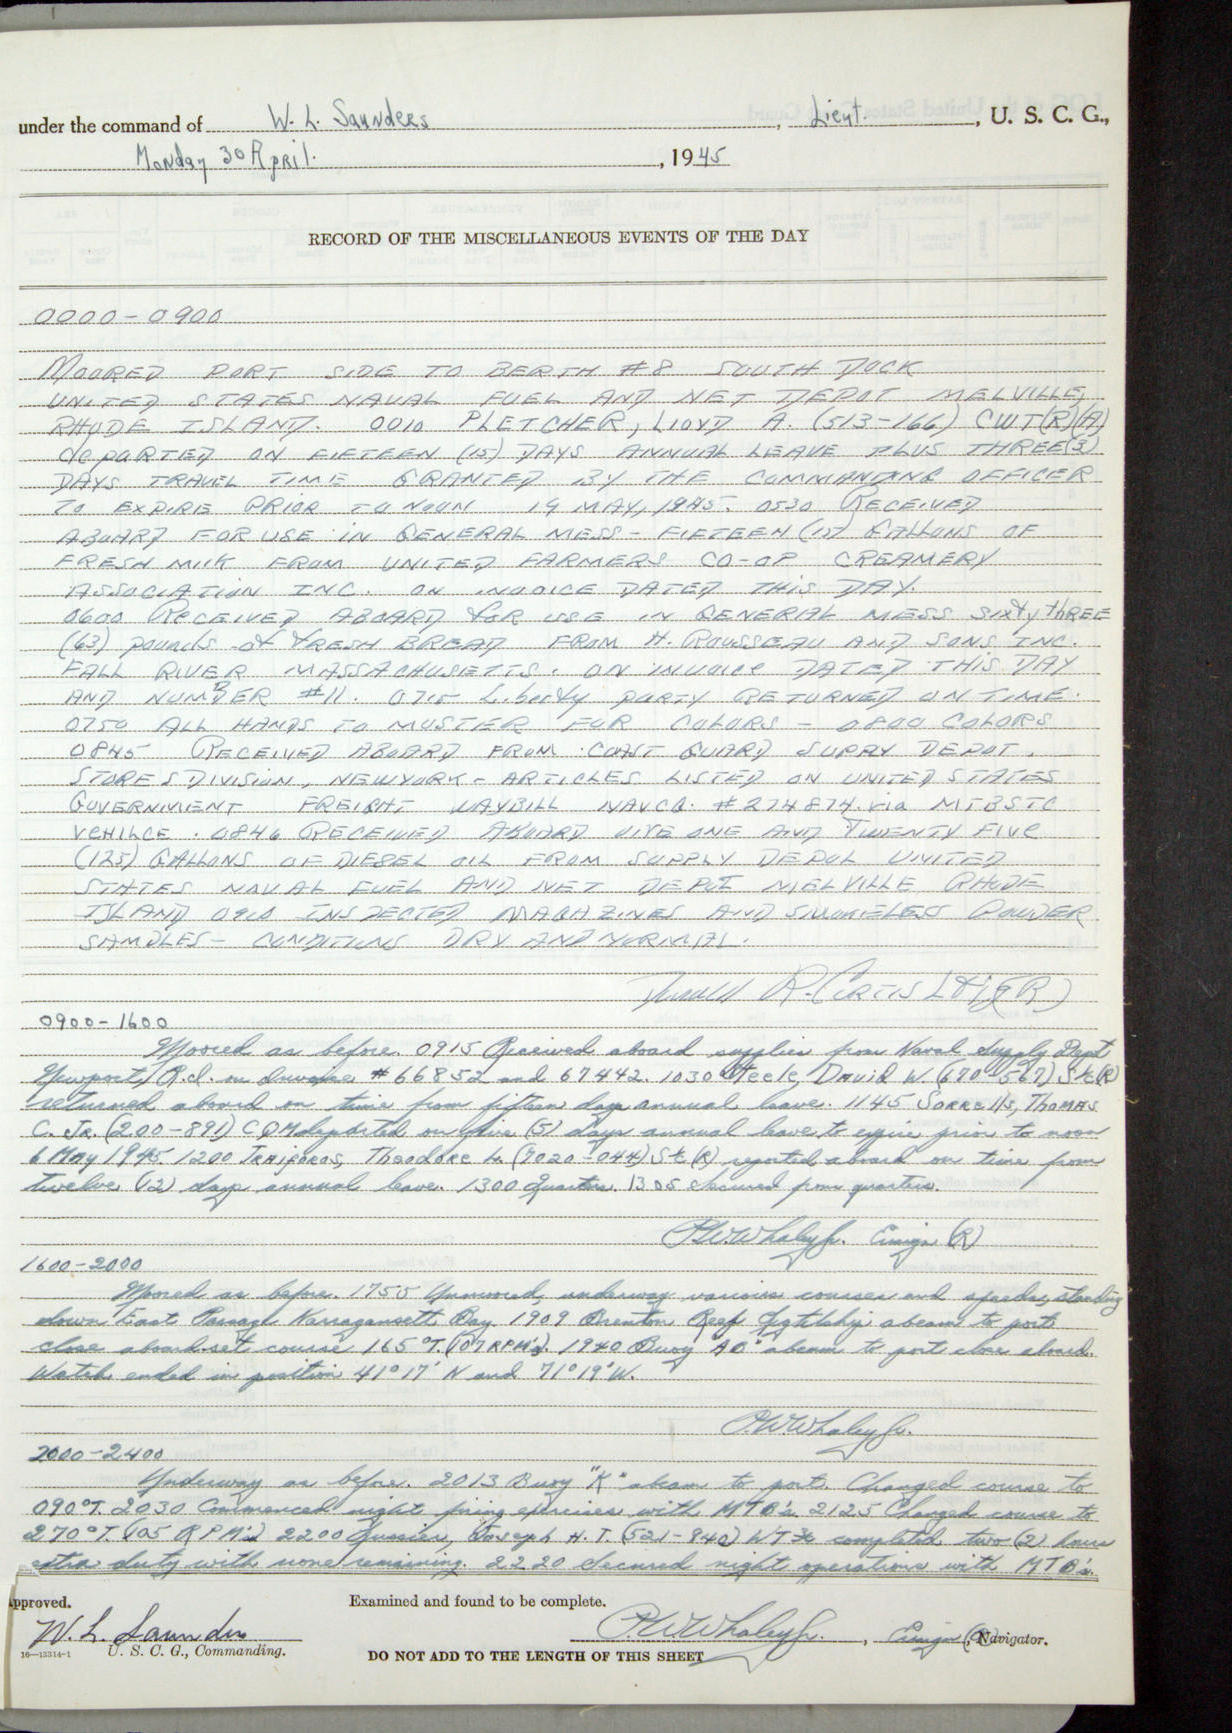 under the command of W. L. Saunders, Lieut., U. S. C. G.,
Monday 30 April., 1945
RECORD OF THE MISCELLANEOUS EVENTS OF THE DAY
0000-0900
MOORED PORT SIDE TO BERTH #8 SOUTH DOCK
UNITED STATES NAVAL FUEL AND NET DEPOT MELVILLE,
RHODE ISLAND. 0010 PLETCHER, LLOYD A. (513-166) CWT(R)(A)
departed ON FIFTEEN (15) DAYS ANNUAL LEAVE PLUS THREE (3)
DAYS TRAVEL TIME GRANTED BY THE COMMANDING OFFICER
TO EXPIRE PRIOR TO NOON 19 MAY, 1945. 0530 RECEIVED
ABOARD FOR USE IN GENERAL MESS - FIFTEEN (15) GALLONS OF
FRESH MILK FROM UNITED FARMERS CO-OP CREAMERY
ASSOCIATION INC. ON INVOICE DATED THIS DAY.
0600 RECEIVED ABOARD for USE IN GENERAL MESS sixty three
(63) pounds of FRESH BREAD FROM H. ROUSSEAU AND SONS INC.
FALL RIVER MASSACHUSETTS. ON INVOICE DATED THIS DAY
AND NUMBER #11. 0715 Liberty party RETURNED ON TIME.
0750 ALL HANDS TO MUSTER FOR COLORS - 0800 COLORS
0845 RECEIVED ABOARD FROM COAST GUARD SUPPLY DEPOT,
STORES DIVISION, NEW YORK - ARTICLES LISTED ON UNITED STATES
GOVERNMENT FREIGHT WAYBILL NAVCG. #274874 via MTBSTC
VEHILCE. 0846 RECEIVED ABOARD ONE AND TWENTY FIVE
(125) GALLONS OF DIESEL OIL FROM SUPPLY DEPOT UNITED
STATES NAVAL FUEL AND NET DEPOT MELVILLE RHODE
ISLAND 0900 INSPECTED MAGAZINES AND SMOKELESS POWDER
SAMPLES - CONDITIONS DRY AND NORMAL.
R. CURTIS Lt(jg)(R)
0900-1600
Moored as before. 0915 Received aboard supplies from Naval Supply Depot
Newport, R.I. on Invoice #66852 and 67442. 1030 Steele, David W. (670-567) Stc(R)
returned aboard on time from fifteen days annual leave. 1145 Sorrells, Thomas
C. Jr. (200-891) CQM departed on five (5) days annual leave to expire prior to noon
6 May 1945. 1200 Traiforos, Theodore L. (7020-044) Stc (R) reported aboard on time from
twelve (12) days annual leave. 1300 Quarters. 1305 Secured from quarters.
P.W. Whaley Jr. Ensign (R)
1600-2000
Moored as before. 1755 Unmoored, underway various courses and speeds, standing
down East Passage Narragansett Bay. 1909 Brenton Reef Lightship abeam to port
close aboard set course 165°T. (107 RPM's). 1940 Buoy "AO" abeam to port close aboard.
Watch ended in position 41°17' N and 71°19' W.
P.W. Whaley Jr.
2000-2400
Underway as before. 2013 Buoy "K" abeam to port. Changed course to
090°T. 2030 Commenced night firing exercises with MTB's. 2125 Changed course to
270°T. (105 RPM's) 2200 Joseph H. T. (521-840) WT3c completed two (2) hours
extra duty with none remaining. 2220 Secured night operations with MTB's.
Approved. Examined and found to be complete.
W. L. Saunders P.W. Whaley Jr., Ensign (R) Navigator.
16—13314-1 U. S. C. G., Commanding.
DO NOT ADD TO THE LENGTH OF THIS SHEET